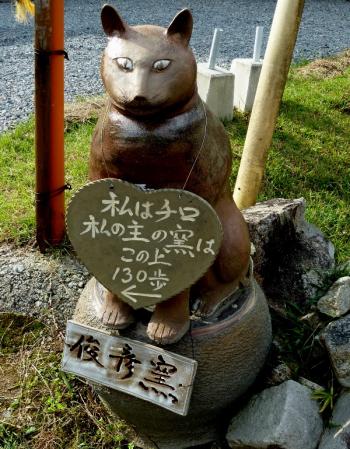 私はチロ
私の主の窯は
この上
130歩
←
俊彦窯